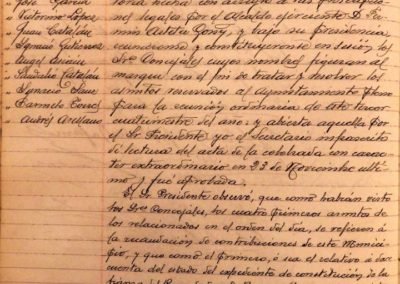 José García
Victorino López
Juan Catalán
Ignacio Gutiérrez
Ángel
Braulio Catalán
Ignacio
Carmelo
Andrés Arellano
toria hecha con arreglo a las prescripcio-
nes legales por el Alcalde ejerciente D. Fer-
mín Arteta Goñy, y bajo su Presidencia,
reuniéronse y constituyéronse en sesión los
Sres Concejales cuyos nombres figuran al
margen con el fin de tratar y resolver los
asuntos reservados al Ayuntamiento pleno
para la reunión ordinaria de este tercer
cuatrimestre del año: y abierta aquella por
el Sr Presidente yo el Secretario infrascrito
di lectura del acta de la celebrada con carac-
ter extraordinario en 23 de Noviembre últi-
mo y fué aprobada.
El Sr Presidente observó, que como habrán visto
los Sres Concejales, los cuatro primeros asuntos de
los relacionados en el orden del día, se refieren á
la recaudación de contribuciones de este Munici-
pio, y que como el primero, ó sea el relativo á dar
cuenta del estado del expediente de constitución de la